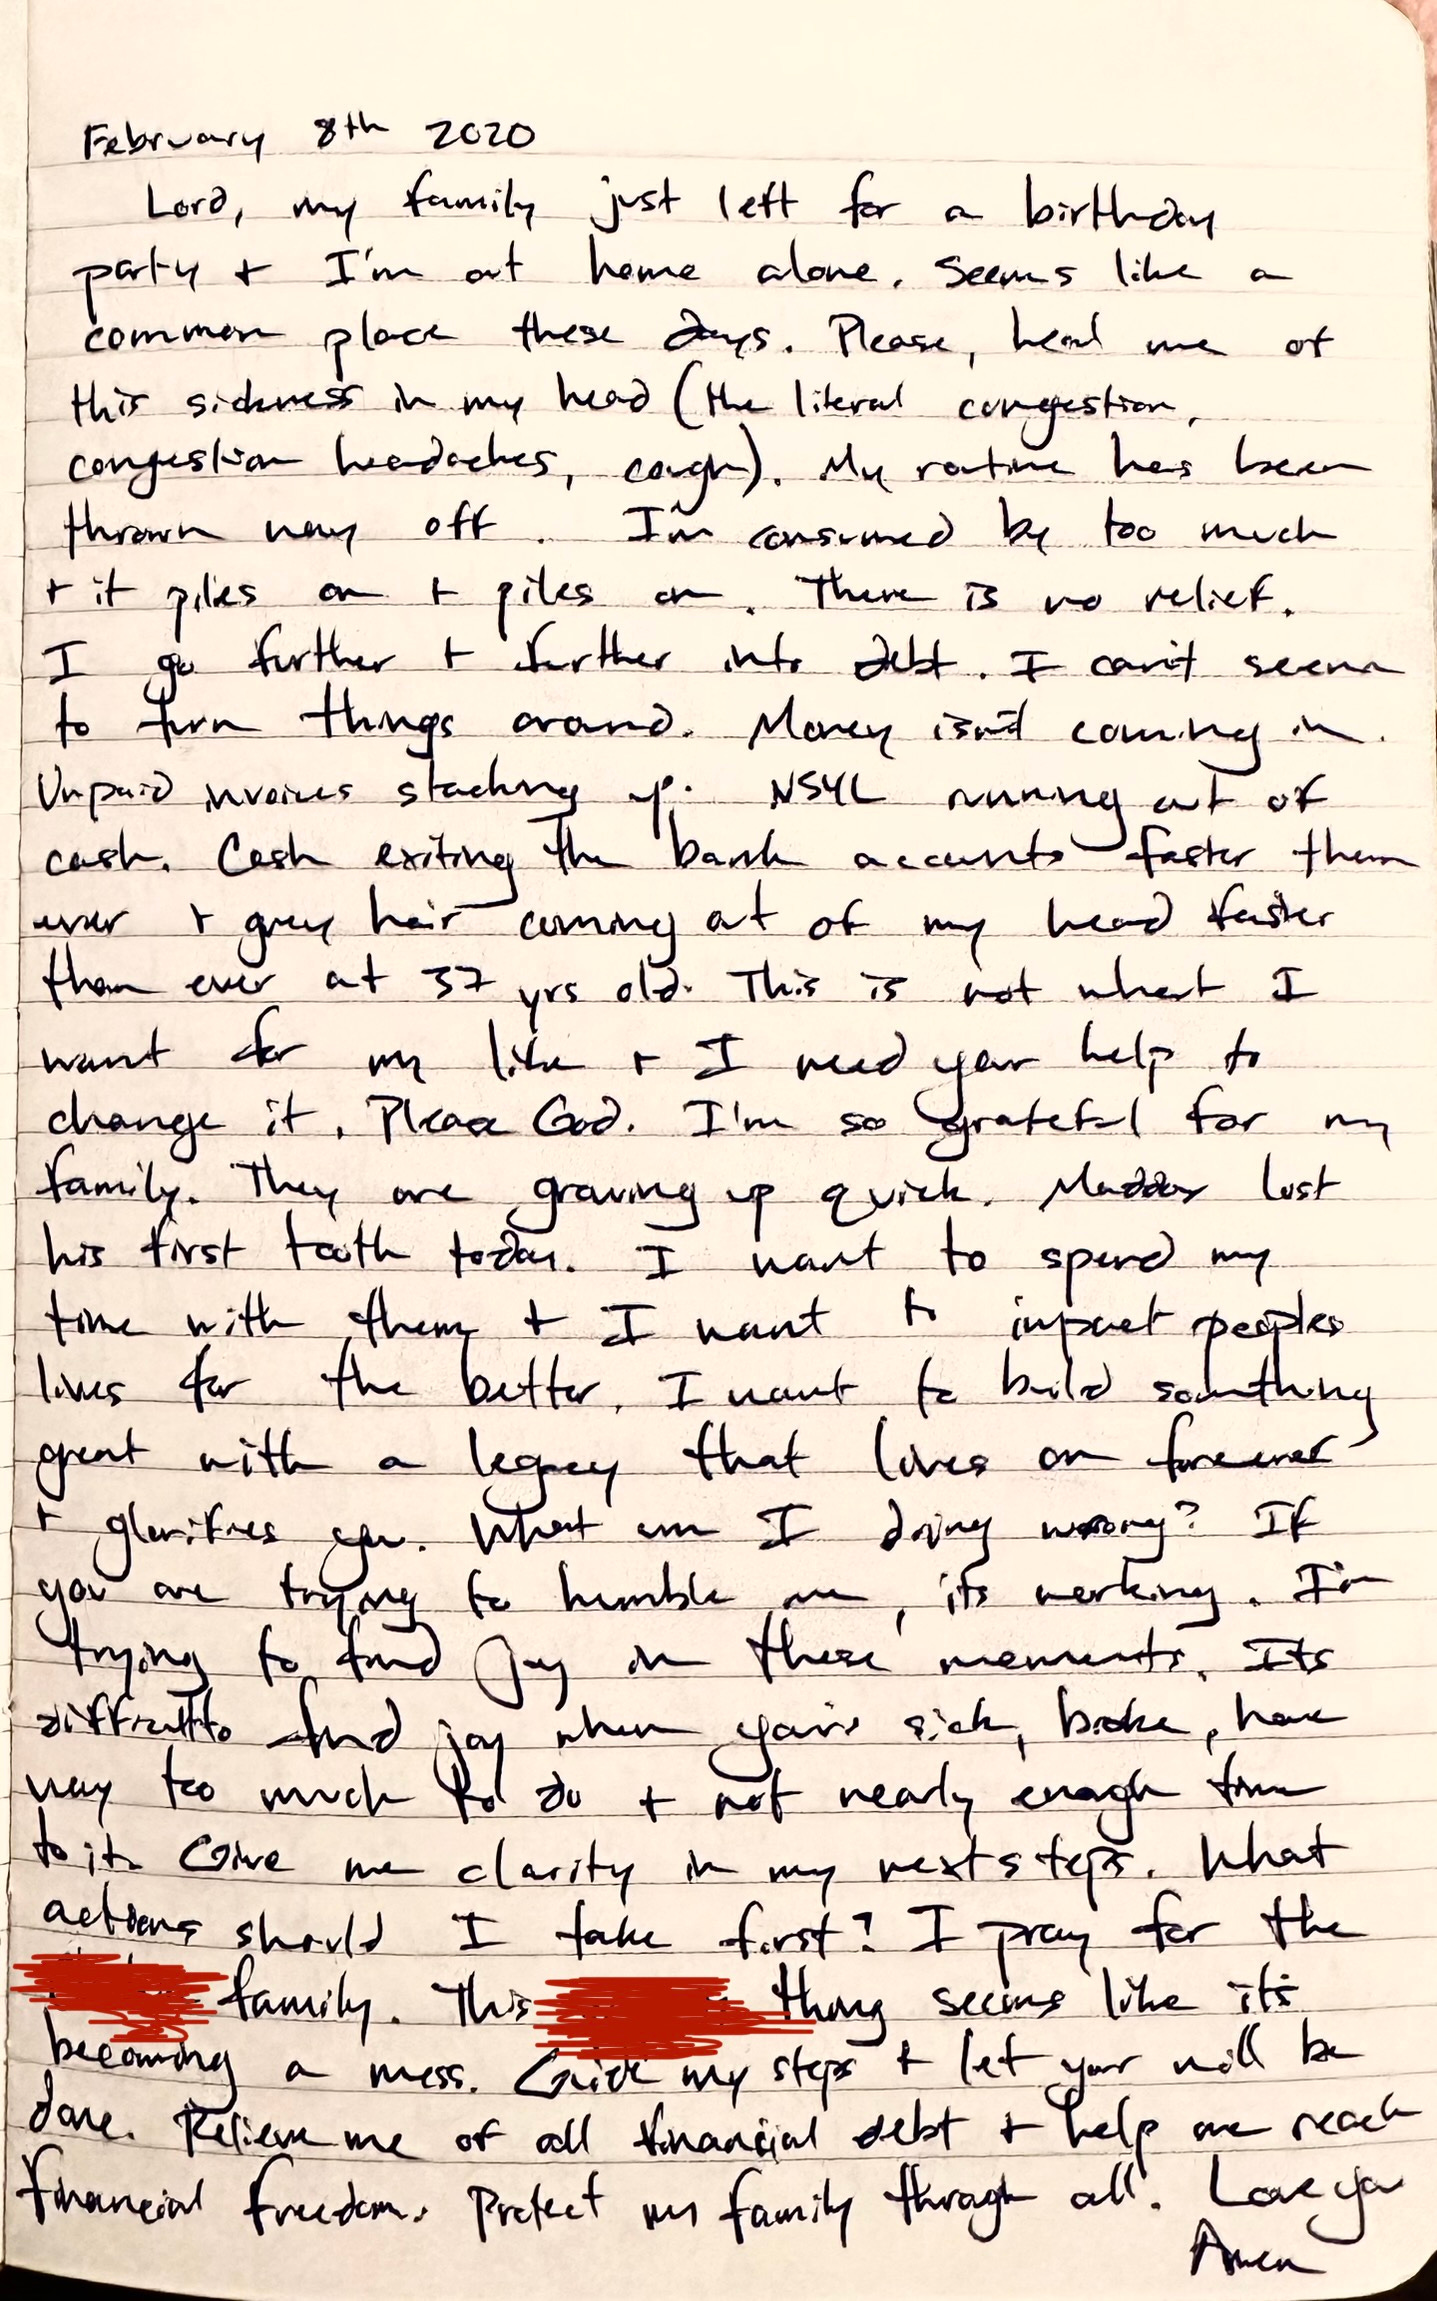 February 8th 2020
Lord, my family just left for a birthday
party + I'm at home alone. Seems like a
common place these days. Please, heal me of
this sickness in my head (the literal congestion,
congestion headaches, cough). My routine has been
thrown way off. I'm consumed by too much
+ it piles on + piles on. There is no relief.
I go further + further into debt. I can't seem
to turn things around. Money isn't coming in.
Unpaid invoices stacking up. NSYL running out of
cash. Cash exiting the bank accounts faster than
ever + grey hair coming out of my head faster
than ever at 37 yrs old. This is not what I
want for my life + I need your help to
change it. Please God. I'm so grateful for my
family. They are growing up quick. Maddox lost
his first tooth today. I want to spend my
time with them + I want to impact peoples
lives for the better. I want to build something
great with a legacy that lives on forever
+ glorifies you. What am I doing wrong? If
you are trying to humble me, its working. I'm
trying to find joy in these moments. Its
difficult to find joy when you're sick, broke, have
way too much to do + not nearly enough time
to it. Give me clarity in my next steps. What
actions should I take first? I pray for the
family. This thing seems like it's
becoming a mess. Guide my steps + let your will be
done. Relieve me of all financial debt + help me reach
financial freedom. Protect my family through all. Love you
Amen